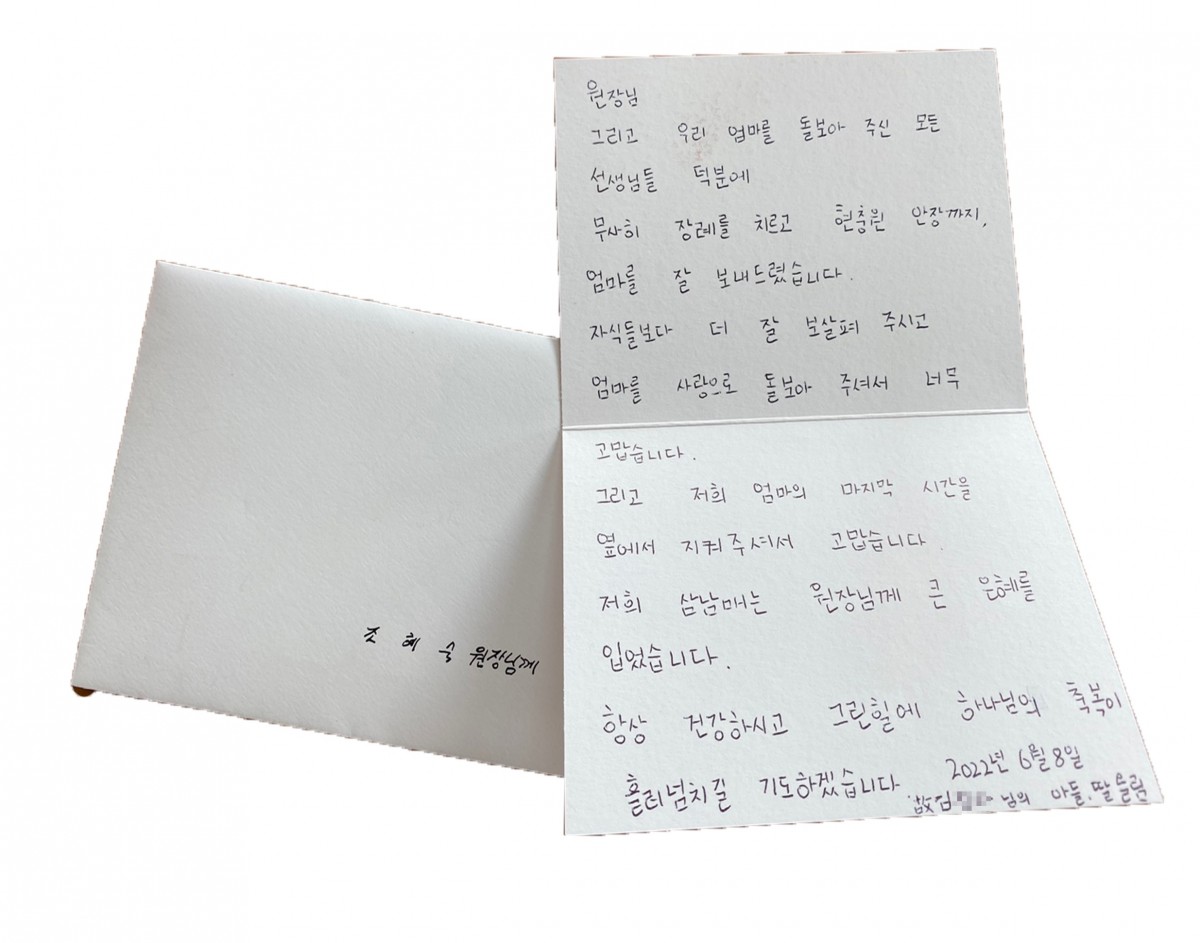 조 혜 숙 원장님께
원장님
그리고 우리 엄마를 돌보아 주신 모든
선생님들 덕분에
무사히 장례를 치르고 현충원 안장까지,
엄마를 잘 보내드렸습니다.
자식들보다 더 잘 보살펴 주시고
엄마를 사랑으로 돌보아 주셔서 너무
고맙습니다.
그리고 저희 엄마의 마지막 시간을
옆에서 지켜주셔서 고맙습니다.
저희 삼남매는 원장님께 큰 은혜를
입었습니다.
항상 건강하시고 그린힐에 하나님의 축복이
흘러넘치길 기도하겠습니다
2022년 6월 8일
故김 님의 아들.딸 올림